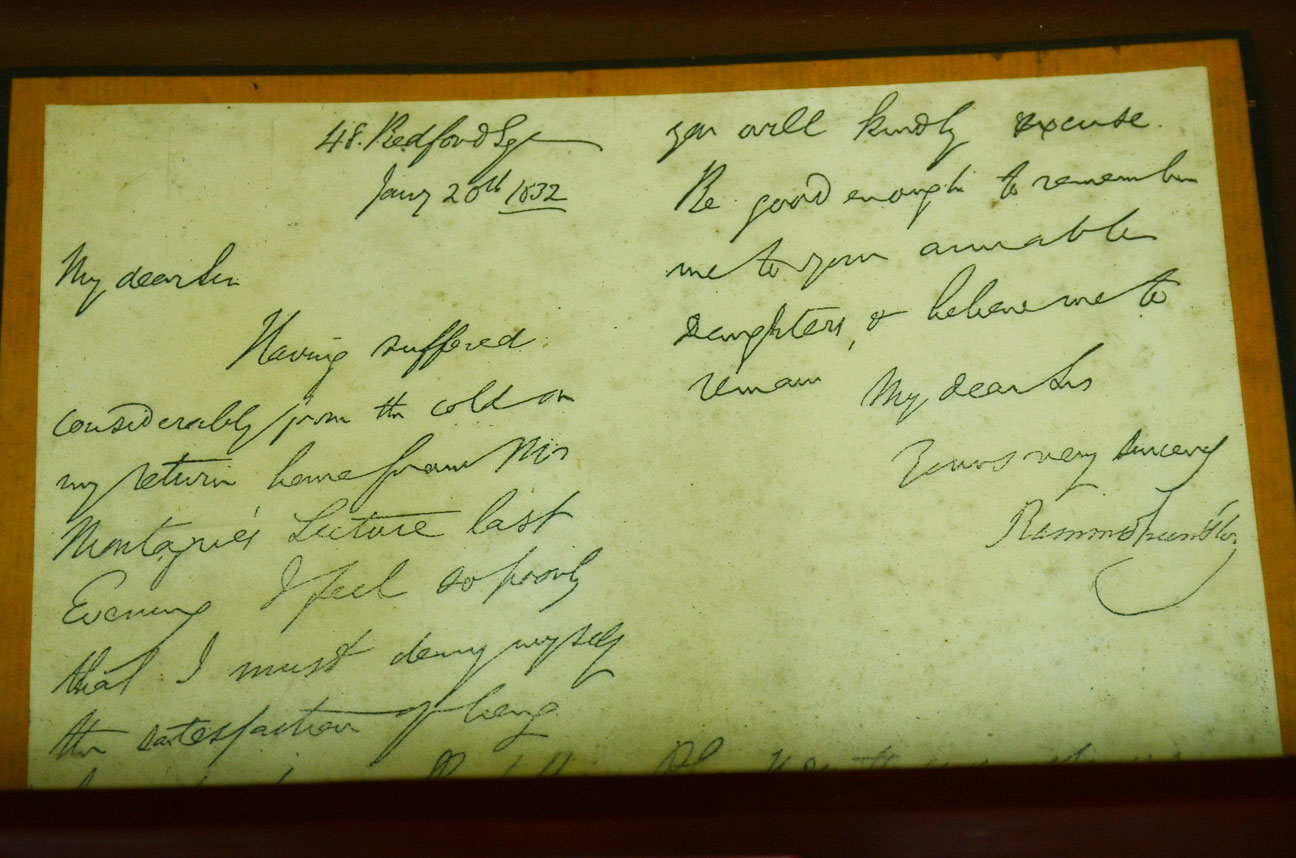 48. Bedford Sqr
Jany 20th 1832
My dear Sir
Having suffered
considerably from the cold on
my return home from Mr
Montague's Lecture last
Evening I feel so poorly
that I must deny myself
the satisfaction of being
you will kindly excuse.
Be good enough to remember
me to your amiable
Daughters, & believe me to
remain My dear Sir
Yours very sincerely
Rammohun Roy